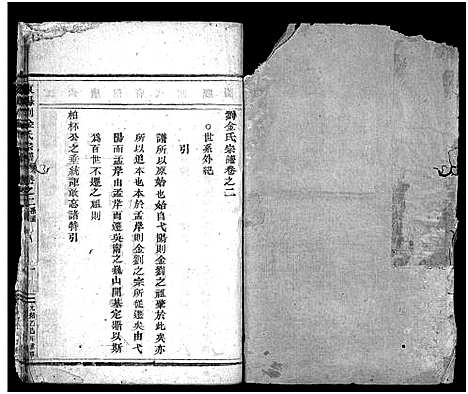 劉金氏宗譜卷之二
○世系外紀
引
譜所以原始也始自弋陽則金劉之祖肇於此矣亦
所以追本也本於孟岸則金劉之宗所從遷矣由弋
陽而孟岸由孟岸而遷吳甯之義山開基定鼎以斯
為百世不遷之祖則
柏杯公之垂統詎敢忘諸特引
金氏宗譜
卷之二